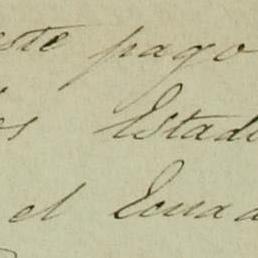 este pago
os Estad
el Ecuad